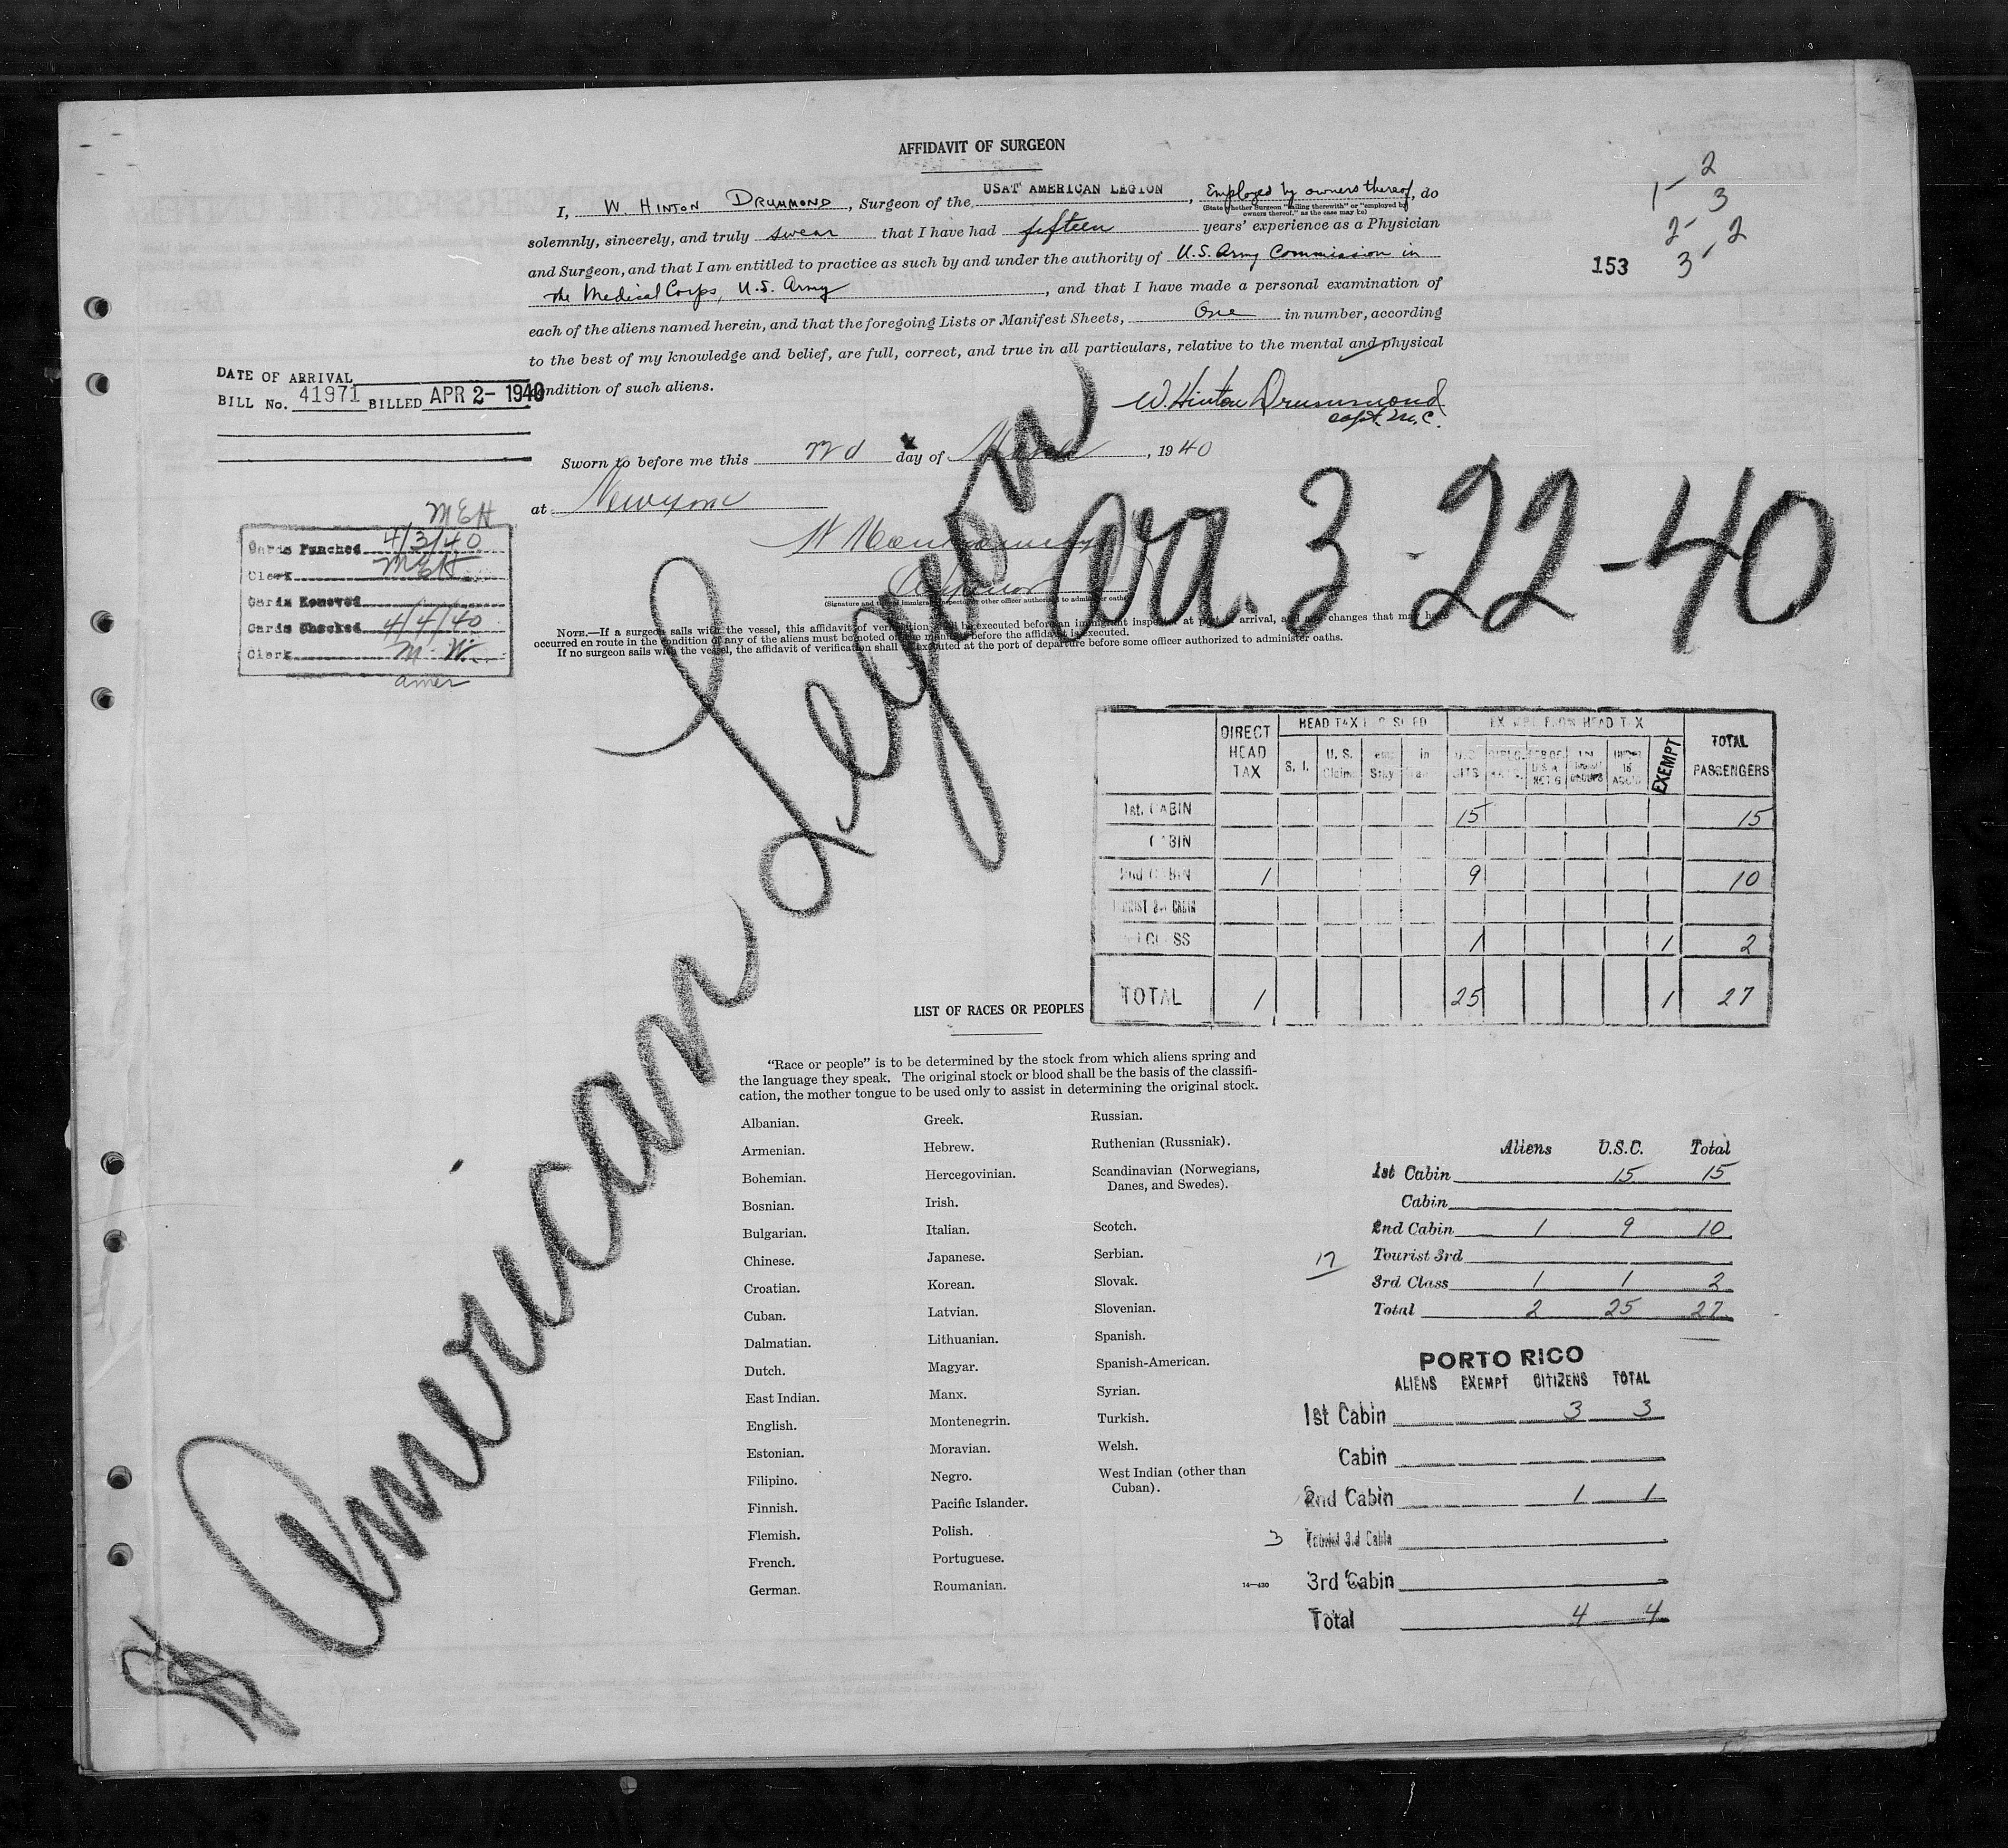 AFFIDAVIT OF SURGEON
I, W. HINTON DRUMMOND, Surgeon of the USAT AMERICAN LEGION, Employed by owners thereof, do
(State whether Surgeon "sailing therewith" or "employed by owners thereof," as the case may be)
solemnly, sincerely, and truly swear that I have had fifteen years' experience as a Physician
and Surgeon, and that I am entitled to practice as such by and under the authority of U.S. Army Commission in
the Medical Corps, U.S. Army, and that I have made a personal examination of
each of the aliens named herein, and that the foregoing Lists or Manifest Sheets, One in number, according
to the best of my knowledge and belief, are full, correct, and true in all particulars, relative to the mental and physical
condition of such aliens.
2
1- 3
2- 2
153 3-
DATE OF ARRIVAL
BILL No. 41971 BILLED APR 2- 1940
W. Hinton Drummond
Capt. M.C.
Sworn to before me this 22d day of March, 1940
at New York
(Signature and title of immigrant inspector or other officer authorized to administer oaths)
NOTE.—If a surgeon sails with the vessel, this affidavit of verification shall be executed before an immigrant inspector at port of arrival, and any changes that may have
occurred en route in the condition of any of the aliens must be noted on the manifest before the affidavit is executed.
If no surgeon sails with the vessel, the affidavit of verification shall be executed at the port of departure before some officer authorized to administer oaths.
MEH
Cards Punched 4/3/40
Clerk MEH
Cards Removed
Cards Checked 4/4/40
Clerk M. W.
amer
American Legion
arr. 3-22-40
DIRECT HEAD TAX
S. I. U. S. Claim
EXEMPT FROM HEAD TAX
EXEMPT
TOTAL PASSENGERS
1st. CABIN 15 15
CABIN
2nd CABIN 1 9 10
TOURIST 3rd CABIN
CLASS 1 1 2
TOTAL 1 25 1 27
LIST OF RACES OR PEOPLES
"Race or people" is to be determined by the stock from which aliens spring and
the language they speak. The original stock or blood shall be the basis of the classifi-
cation, the mother tongue to be used only to assist in determining the original stock.
Albanian.
Armenian.
Bohemian.
Bosnian.
Bulgarian.
Chinese.
Croatian.
Cuban.
Dalmatian.
Dutch.
East Indian.
English.
Estonian.
Filipino.
Finnish.
Flemish.
French.
German.
Greek.
Hebrew.
Hercegovinian.
Irish.
Italian.
Japanese.
Korean.
Latvian.
Lithuanian.
Magyar.
Manx.
Montenegrin.
Moravian.
Negro.
Pacific Islander.
Polish.
Portuguese.
Roumanian.
Russian.
Ruthenian (Russniak).
Scandinavian (Norwegians,
Danes, and Swedes).
Scotch.
Serbian.
Slovak.
Slovenian.
Spanish.
Spanish-American.
Syrian.
Turkish.
Welsh.
West Indian (other than
Cuban).
14—430
Aliens U.S.C. Total
1st Cabin 15 15
Cabin
2nd Cabin 1 9 10
17 Tourist 3rd
3rd Class 1 1 2
Total 2 25 27
PORTO RICO
ALIENS EXEMPT CITIZENS TOTAL
1st Cabin 3 3
Cabin
2nd Cabin 1 1
3 Tourist 3.d Cabin
3rd Cabin
Total 4 4